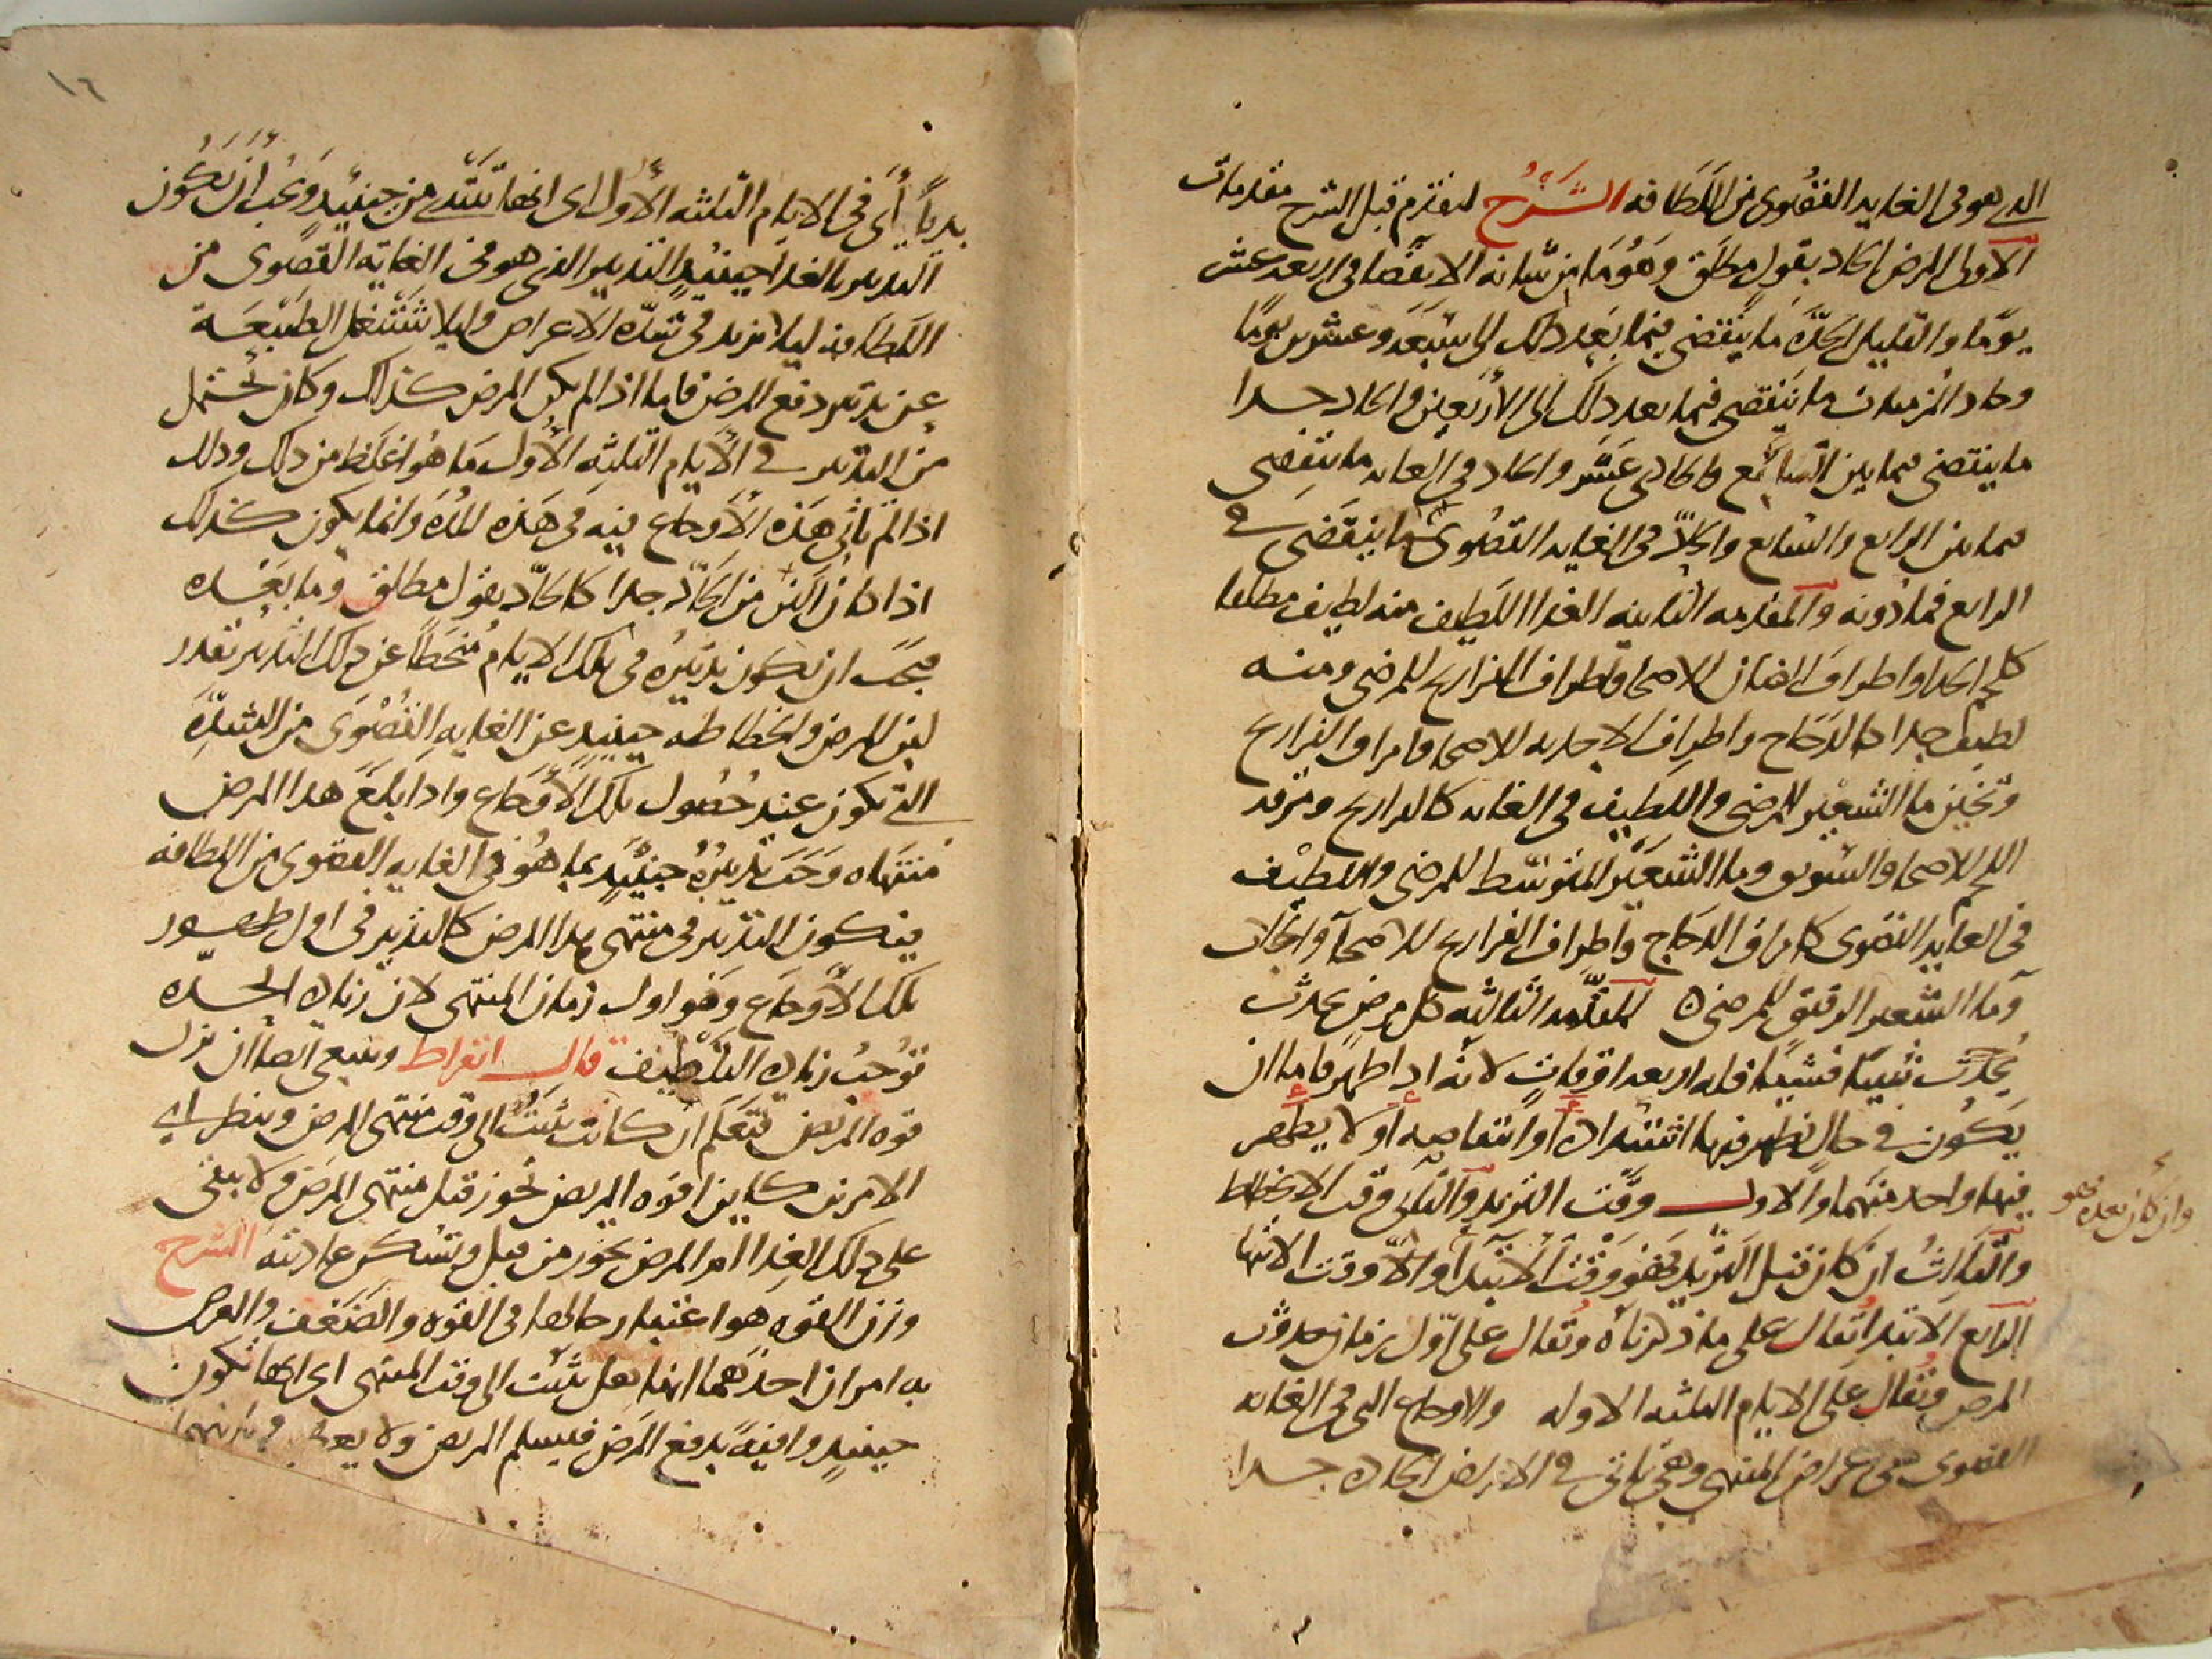 الذي هو في الغاية القصوى من اللطافة الشرح لنقدم قبل الشرح مقدمات
الاولى المرض الحاد بقول مطلق وهو ما من شانه الانقضا في اربعة عشر
يوما والقليل الحدة ما ينقضي فيما بعد ذلك الى سبعة وعشرين يوما
وحاد المزمنات ما ينقضي فيما بعد ذلك الى الاربعين والحاد جدا
ما ينقضي فيما بين السابع والحادي عشر والحاد في الغاية ما ينقضي
فيما بين الرابع والسابع والحاد في الغاية القصوى ما ينقضي في
الرابع فما دونه والمقدمة الثانية الغذا اللطيف منه لطيف مطلقا
كلحم الجدا واطراف الضان للاصحا واطراف الفراريج للمرضى ومنه
لطيف جدا كالدجاج واطراف الاجدية للاصحا وامراق الفراريج
وثخين ما الشعير للمرضى واللطيف في الغاية كالدراريج ومرقة
اللحم للاصحا والسويق وما الشعير المتوسط للمرضى واللطيف
في الغاية القصوى كامراق الدجاج واطراف الفراريج للاصحا والجلاب
وما الشعير الرقيق للمرضى ه المقدمة الثالثة كل مرض يحدث
يحدث شيا فشيا فله اربعة اوقات لانه اذا ظهر فاما ان
يكون في حال يظهر فيها اشتداده او انتقاصه او لا يظهر
فيها واحد منهما والاول وقت التزيد والثاني وقت الانحطاط
والثالث ان كان قبل التزيد فهو وقت الابتدا والا وقت الانتها
وان كان بعده فهو
الرابع الابتدا يقال على ما ذكرناه ويقال على اول زمان حدوث
المرض ويقال على الايام الثلثة الاولة والاوجاع التي في الغاية
القصوى هي اعراض المنتهى وهي تاتي في الامراض الحادة جدا
١٦
بديا أي في الايام الثلثة الأول اى انها تبتدي من حينئذ ويجب ان يكون
التدبير بالغذا حينئذ التدبير الذي هو في الغاية القصوى من
اللطافة ليلا يزيد في شدة الاعراض وليلا تشتغل الطبيعة
عن تدبير دفع المرض فاما اذا لم يكن المرض كذلك وكان يحتمل
من التدبير في الأيام الثلثة الأول ما هو اغلظ من ذلك وذلك
اذا لم تاتي هذه الأوجاع فيه في هذه المدة وانما يكون كذلك
اذا كان الين من الحاد جدا كالحاد بقول مطلق وما بعده
فيجب ان يكون تدبيره في تلك الايام منحطا عن ذلك التدبير بقدر
لين المرض وانحطاطه حينئذ عن الغاية القصوى من الشدة
التي تكون عند حصول تلك الأوجاع واذا بلغ هذا المرض
منتهاه وجب تدبيره حينئذ بما هو في الغاية القصوى من اللطافة
فيكون التدبير في منتهى هذا المرض كالتدبير في اول ظهور
تلك الأوجاع وهو اول زمان المنتهى لان زيادة الحدة
توجب زيادة التلطيف قال ابقراط وينبغي ايضا ان تزن
قوة المريض فتعلم ان كانت تثبت الى وقت منتهى المرض وينظر اي
الامرين كاين اقوة المريض تخور قبل منتهى المرض ولا يبقى
على ذلك الغذا ام المرض يخور من قبل وتسكن عاديته الشرح
وزن القوة هو اعتبار حالها في القوة والضعف والغرض
به امران احدهما انها هل تثبت الى وقت المنتهى اى انها تكون
حينئذ وافية بدفع المرض فيسلم المريض ولا يعطب